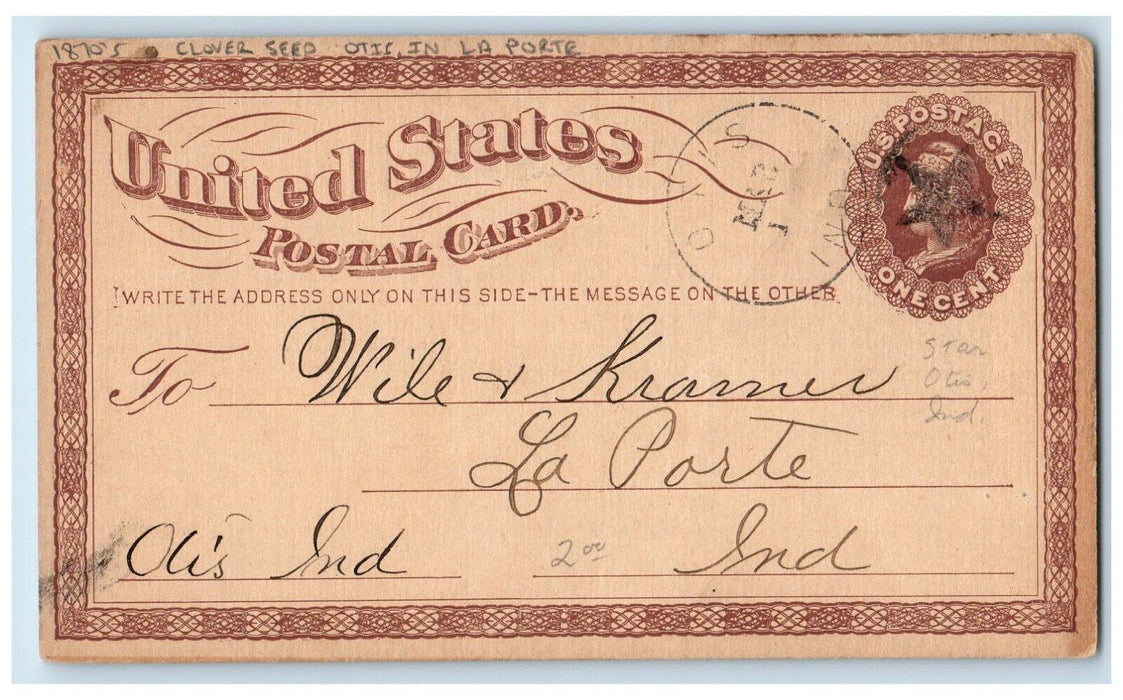 1870'S CLOVER SEED OTIS, IN LA PORTE
United States
POSTAL CARD.
U.S. POSTAGE
ONE CENT
OTIS
IND
1
WRITE THE ADDRESS ONLY ON THIS SIDE-THE MESSAGE ON THE OTHER
To Wile & Kramer
Star
Otis,
Ind.
La Porte
Otis Ind
2 00
Ind